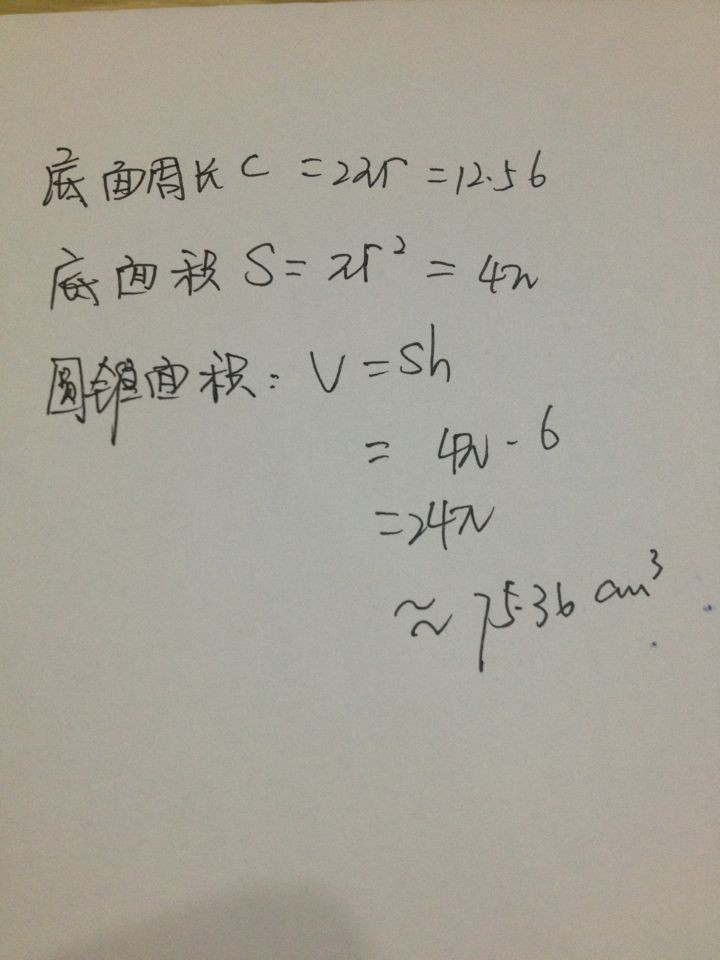 底面周长 C = 2πr = 12.56
底面积 S = πr² = 4π
圆锥面积: V = Sh
= 4π · 6
= 24π
≈ 75.36 cm³